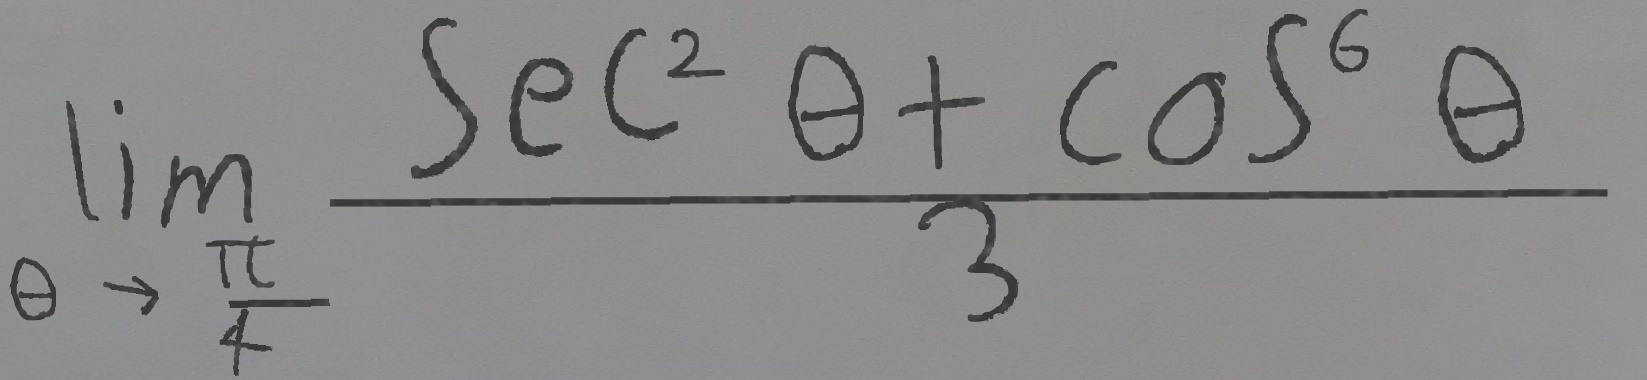 lim θ → π/4 (sec² θ + cos⁶ θ)/3